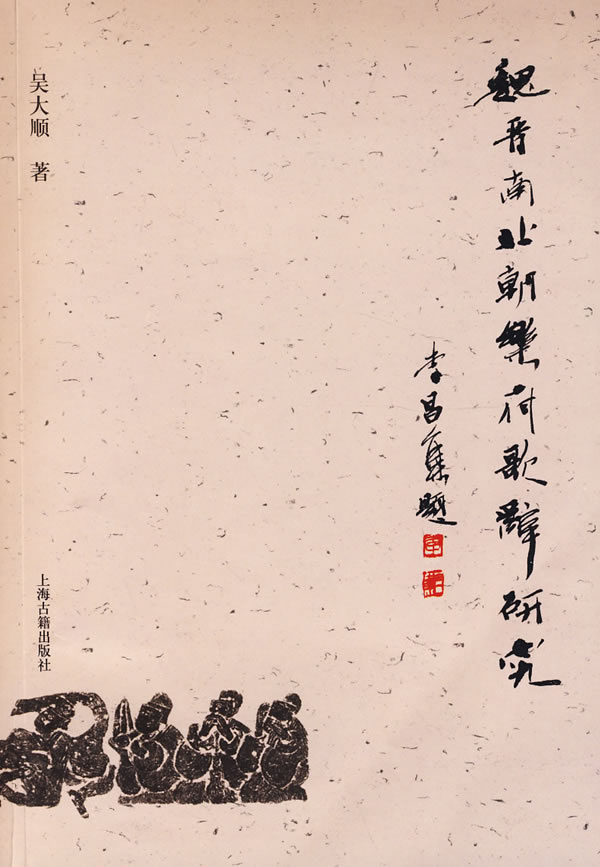 魏晋南北朝樂府歌辞研究
李昌集題
吴大顺 著
上海古籍出版社